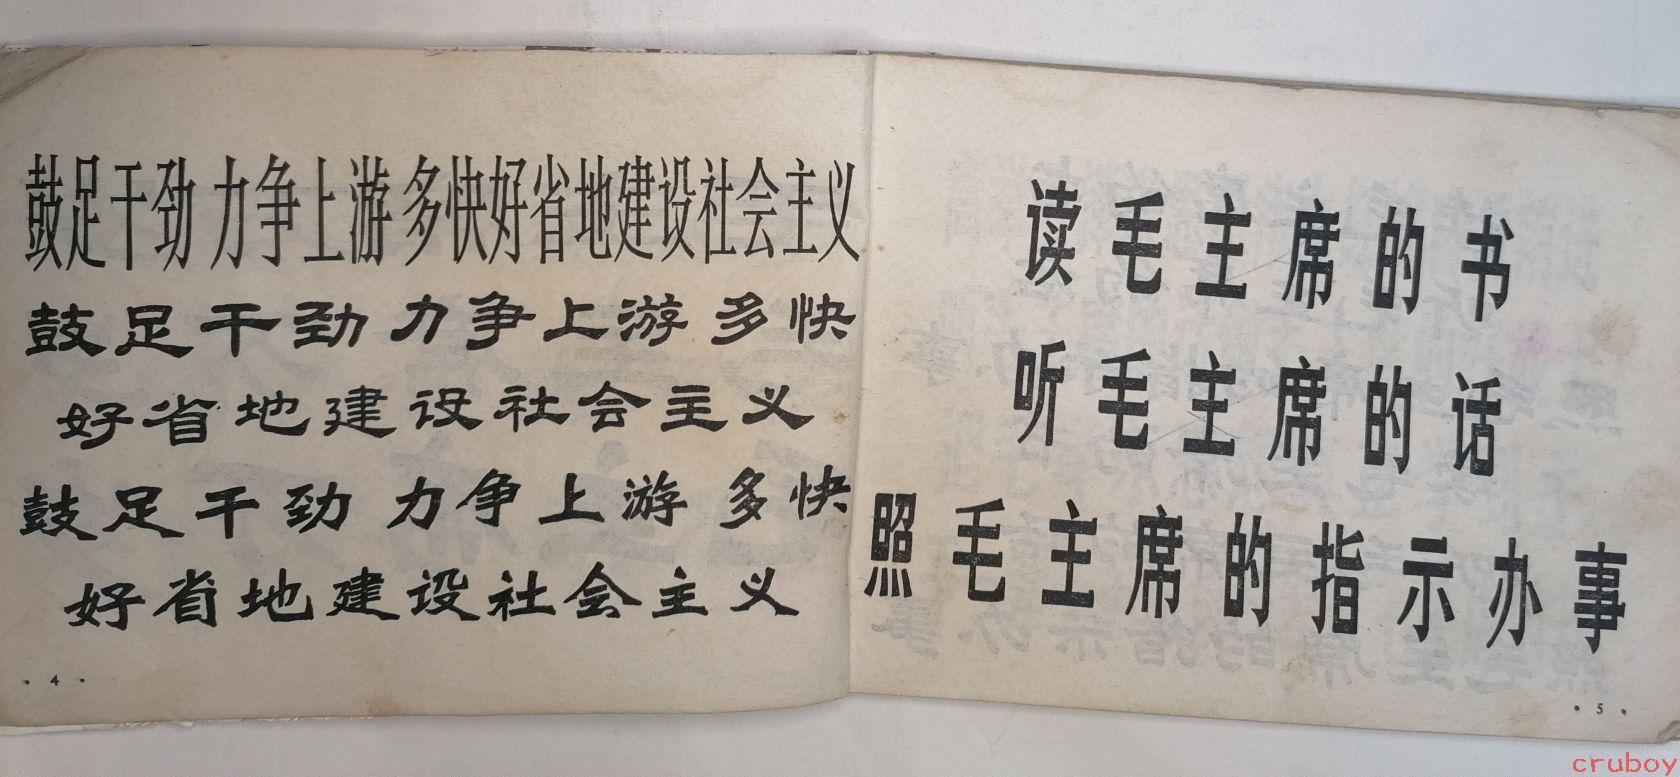 鼓足干劲 力争上游 多快好省地建设社会主义
鼓足干劲 力争上游 多快
好省地建设社会主义
鼓足干劲 力争上游 多快
好省地建设社会主义
·4·
读毛主席的书
听毛主席的话
照毛主席的指示办事
·5·
cruboy